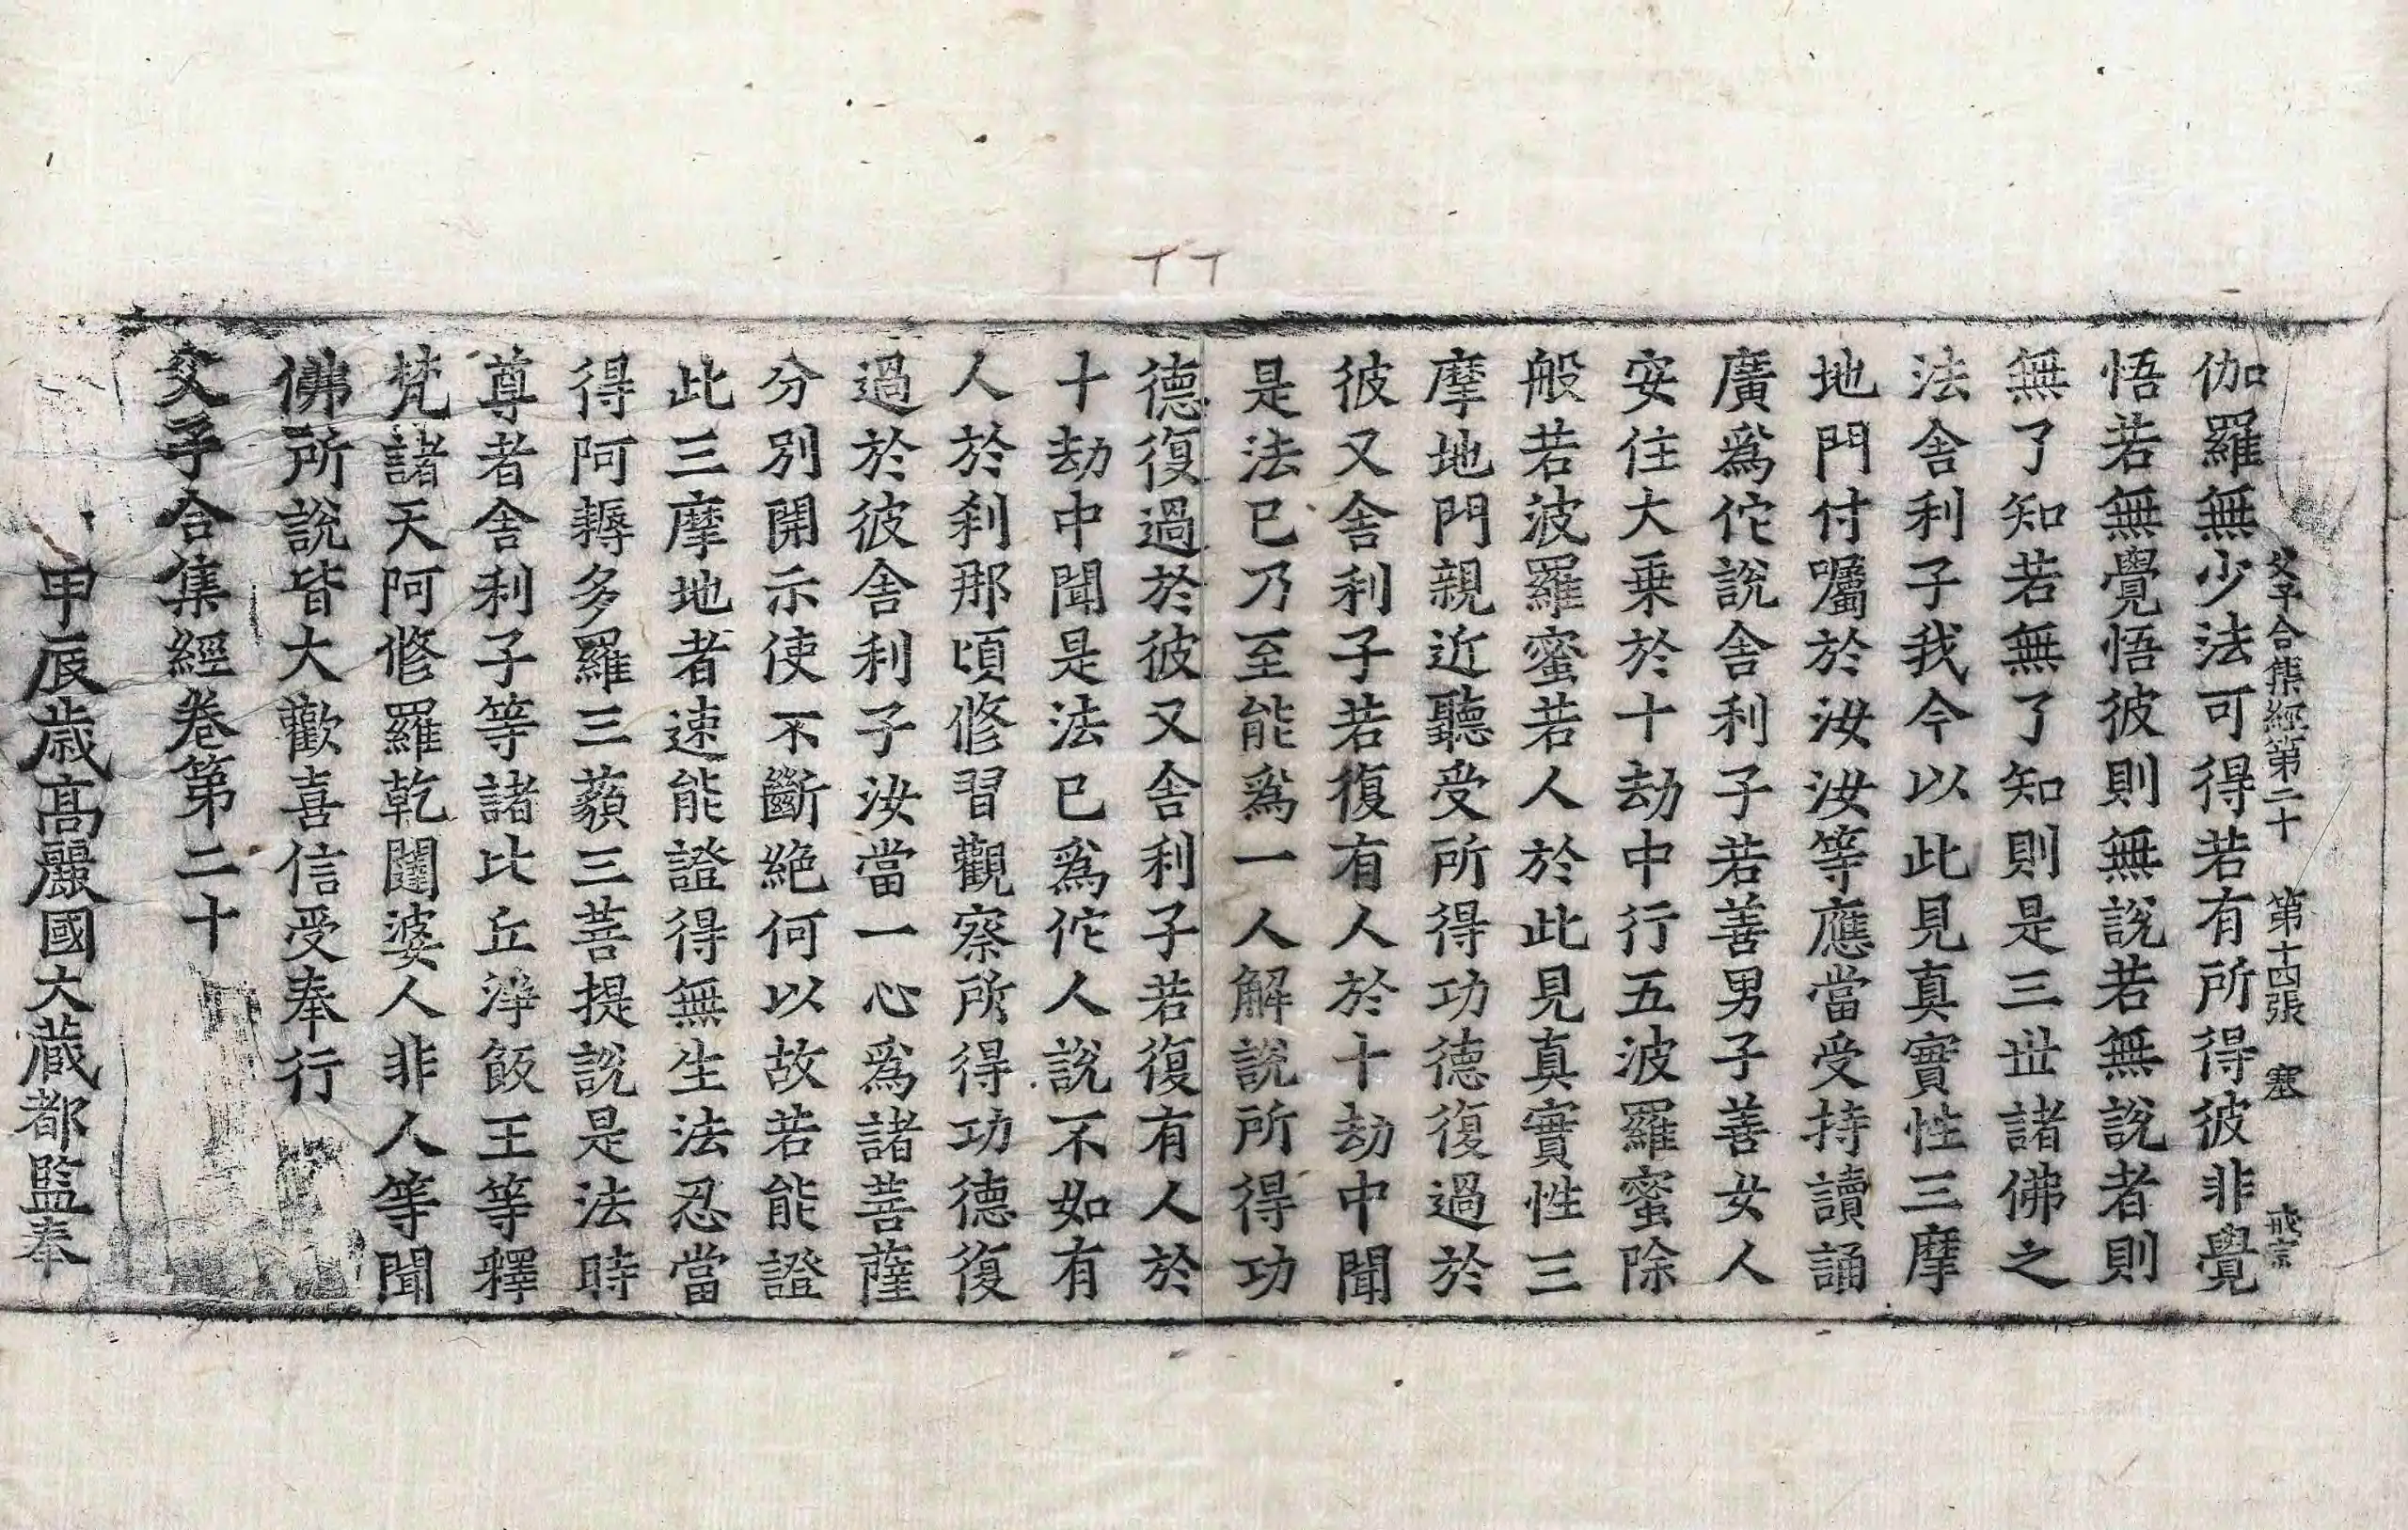 父子合集經第二十 第十四張 塞 戒宗
伽羅無少法可得若有所得彼非覺
悟若無覺悟彼則無說若無說者則
無了知若無了知則是三世諸佛之
法舍利子我今以此見真實性三摩
地門付囑於汝汝等應當受持讀誦
廣爲佗說舍利子若善男子善女人
安住大乗於十劫中行五波羅蜜除
般若波羅蜜若人於此見真實性三
摩地門親近聽受所得功德復過於
彼又舍利子若復有人於十劫中聞
是法已乃至能爲一人解說所得功
德復過於彼又舍利子若復有人於
十劫中聞是法已爲佗人說不如有
人於刹那頃修習觀察所得功德復
過於彼舍利子汝當一心爲諸菩薩
分別開示使不斷絕何以故若能證
此三摩地者速能證得無生法忍當
得阿耨多羅三藐三菩提說是法時
尊者舍利子等諸比丘淨飯王等釋
梵諸天阿修羅乾闥婆人非人等聞
佛所說皆大歡喜信受奉行
父子合集經卷第二十
甲辰歲高麗國大藏都監奉